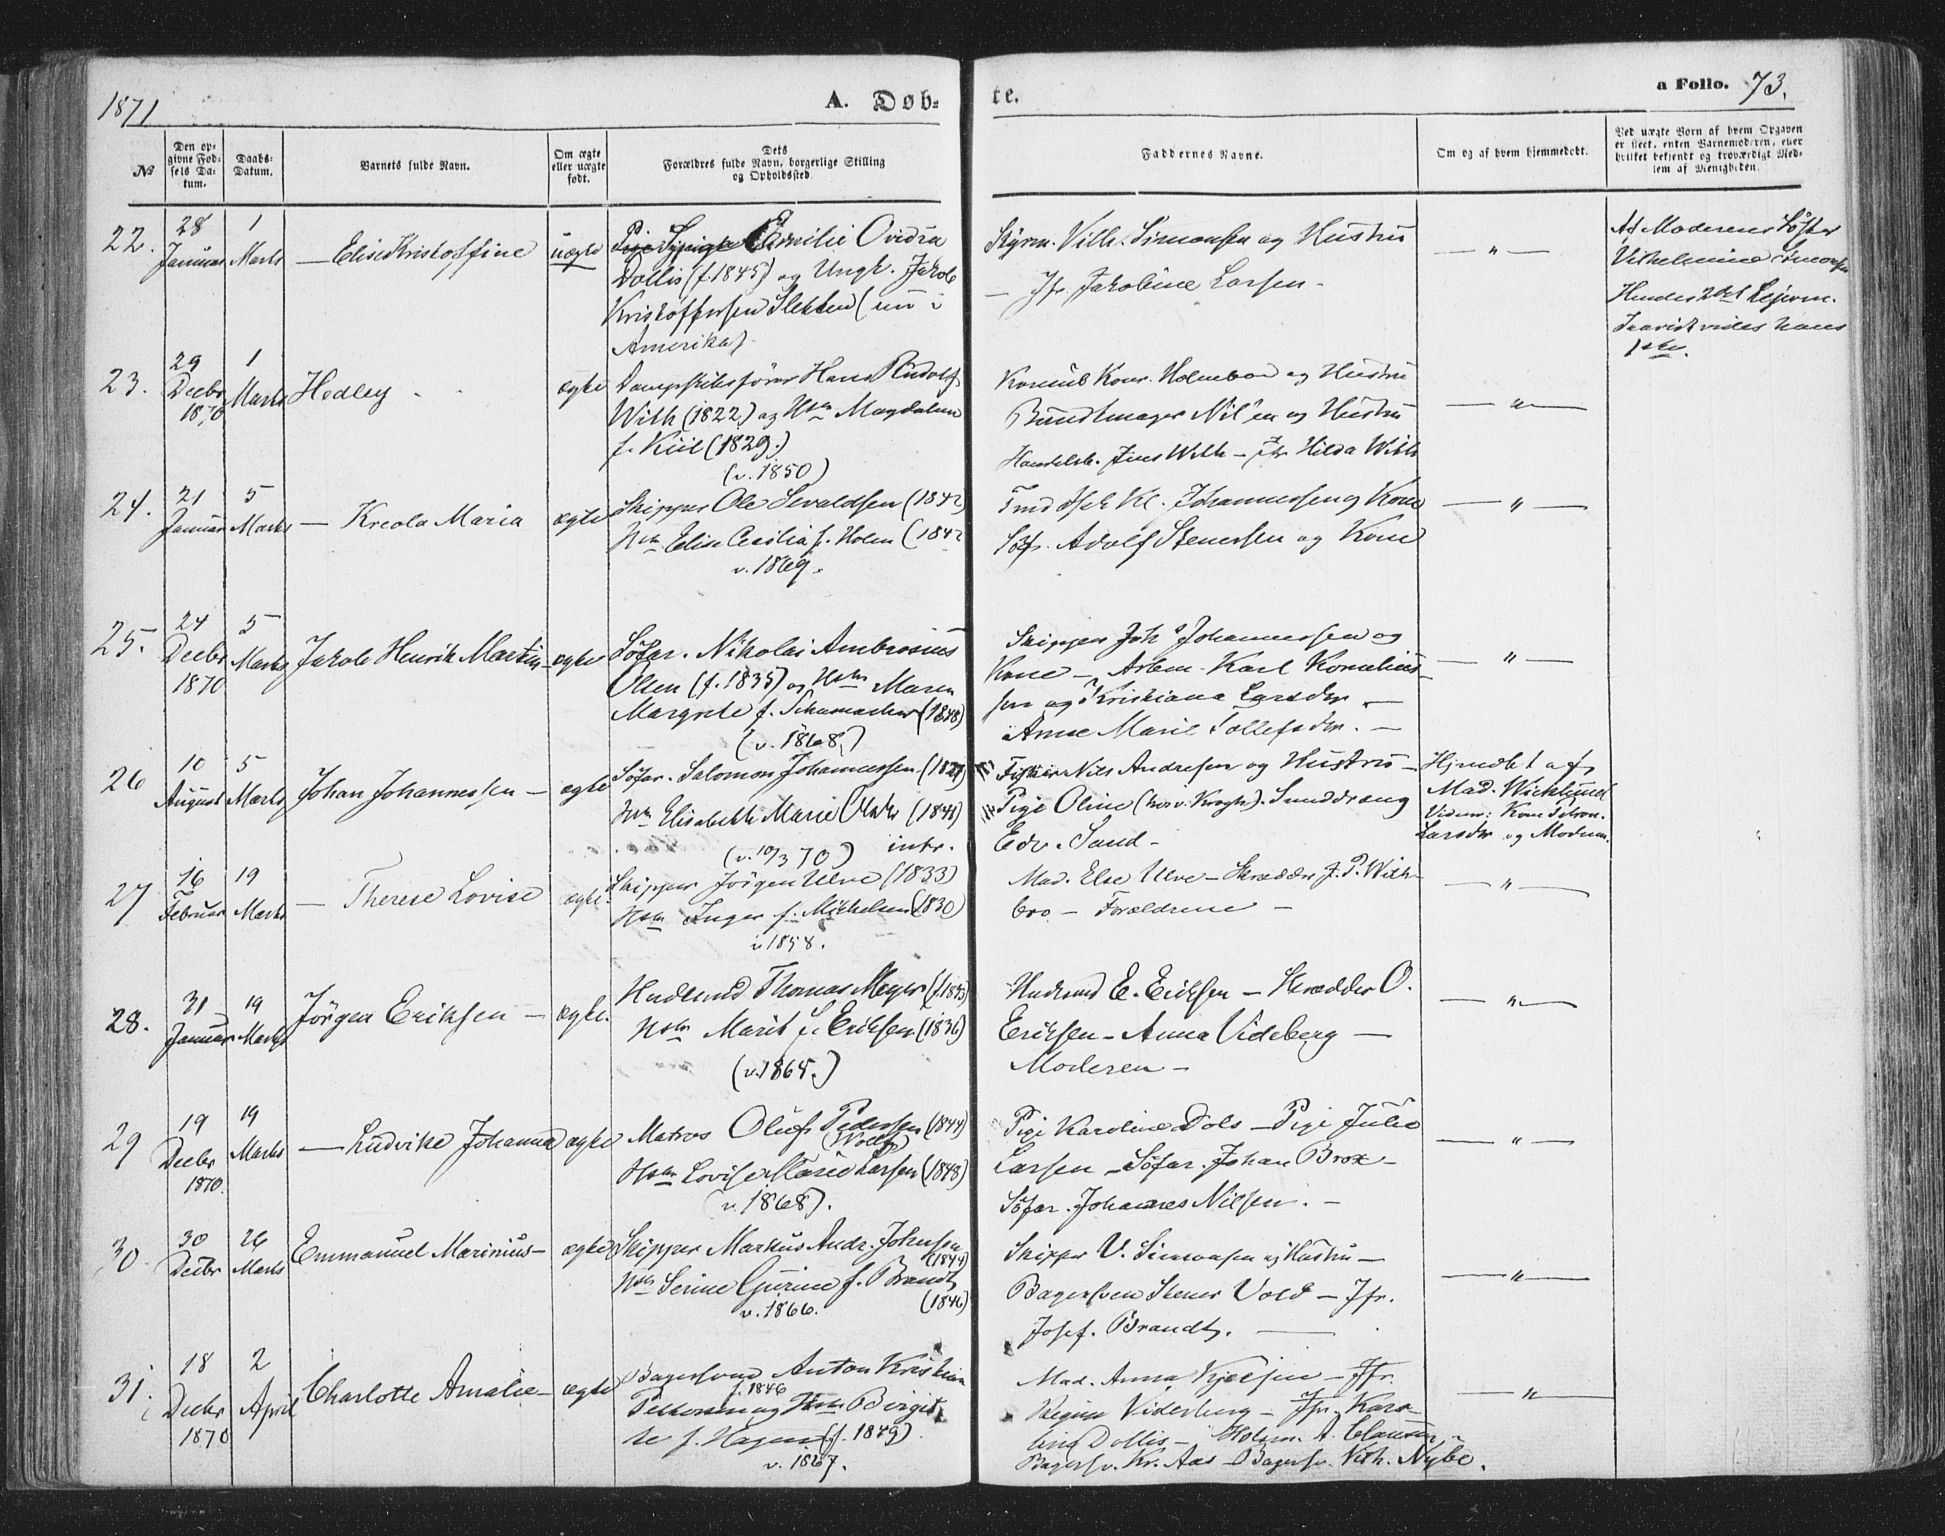 1871
A. Døb-
te.
a Folio. 73.
№
Den op-
givne Fød-
sels Da-
tum.
Daabs-
Datum.
Barnets fulde Navn.
Om ægte
eller uægte
født.
Dets
Forældres fulde Navn, borgerlige Stilling
og Opholdssted.
Faddernes Navne.
Om og af hvem hjemmedøbt.
Ved uægte Børn af hvem Opgaven
er skeet, enten Barnemoderen, eller
hvilket bekjendt og troværdigt Med-
lem af Menigheden.
22. 28 Januar 1 Marts — Elise Kristoffine uægte
Emilie Ovidia
Dollis (f. 1845) og Ungk. Jakob
Kristoffersen Slekken (nu i
Amerika)
Vilh. Simonsen og Hustru
— Jfr. Jakobine Larsen -
— " —
Af Moderens Søster
Vilhelmine Simonsen
Hendes 2det Lejerm.
hans
1ste.
23. 29 Decbr 1870 1 Marts Hedley ægte
Dampskibsfører Hans Rudolf
With (1822) og Hstr Magdalena
f. Kiil (1829.)
(v. 1850)
Konsul Konr. Holmboe og Hustru
Bundtmager Nilsen og Hustru
Handelsb. Jens With — Jfr. Hilda With
— " —
24. 21 Januar 5 Marts — Kreola Maria ægte
Skipper Ole Sevaldsen (1842)
Hstr Elise Cecilia f. Holm (1842
v. 1869.
Kl. Johannessen og Kone
Søf. Adolf Stenersen og Kone
— " —
25. 24 Decbr 1870 5 Marts Jakob Henrik Martin — ægte
Søfar. Nikolai Ambrosius
Olsen (f. 1835) og Hstr Maren
Margrete f. Schumacher (1848)
(v. 1868.)
Skipper Johs Johannessen og
Kone — Arbm. Karl Kornelius-
sen og Kristiana Larsdtr. —
Anne Marie Tollefsdtr. —
— " —
26 10 August 5 Marts Johan Johannessen — ægte
Søfar. Salomon Johannessen
Hstr Elisabeth Marie Olsdtr
(v. 10/3 70) intr.
Fisker Nils Andresen og Hustru —
Pige Oline
Edv. Sand -
Hjmdøbt af
Mad. Wicklund
Larsdtr og Moderen.
27 16 Februar 19 Marts — Therese Lovise ægte.
Skipper Jørgen Ulve (1833)
Hstr Inger f. Michelsen (1830)
v. 1858.
Mad. Else Ulve — Skrædder J. P. With-
bro — Forældrene —
— " —
28. 31 Januar 19 Marts Jørgen Eriksen — ægte.
Thomas Meyer
Hstr Marit f. Eriksen (1836)
(v. 1865.)
E. Eriksen — Skrædder O.
Eeriksen — Anna Videberg —
Moderen —
— " —
29 19 Decbr 1870. 19 Marts — Ludvike Johanna ægte
Matros Oluf Pedersen (1844)
(Wolff)
Hstr Lovise Marie Larsen (1848)
(v. 1868).
Pige Karoline Dols — Pige Julie
Larsen — Søfar. Johan Brox —
Søfar. Johannes Nilsen. —
— " —
30 30 Decbr 26 Marts Emmanuel Marinius — ægte
Skipper Markus Andr. Johnsen
(1844)
Hstr Serine Gurine f. Brandt
v. 1866. (1846)
Skipper V. Simonsen og Hustru —
Bagersven Stener Vold — Jfr.
Josef. Brandt. —
— " —
31. 18 Decbr 1870 2 April Charlotte Amalie — ægte
Bagersvend Anton Kristian
f. 1846
Pettersen og Hstr Birgit-
te f. Hagen (f. 1849).
v. 1867.
Mad. Anna Kjelsen — Jfr.
Regine Viderberg — Jfr. Karo-
line Dollis — A. Clausen -
Bagersv. Kr. Aas — Bagersv. Vilh. Nybe.
— " —